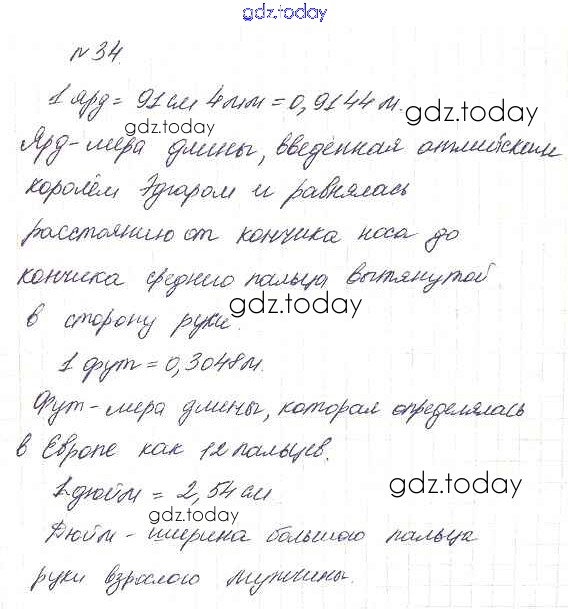 gdz.today
№34.
1 ярд = 91 см 4 мм = 0,9144 м.
gdz.today
gdz.today
Ярд - мера длины, введённая английским
королём Эдгаром и равнялась
расстоянию от кончика носа до
кончика среднего пальца вытянутой
в сторону руки.
gdz.today
1 фут = 0,3048 м.
Фут - мера длины, которая определялась
в Европе как 12 пальцев.
1 дюйм = 2,54 см
gdz.today
gdz.today
Дюйм - ширина большого пальца
руки взрослого мужчины.